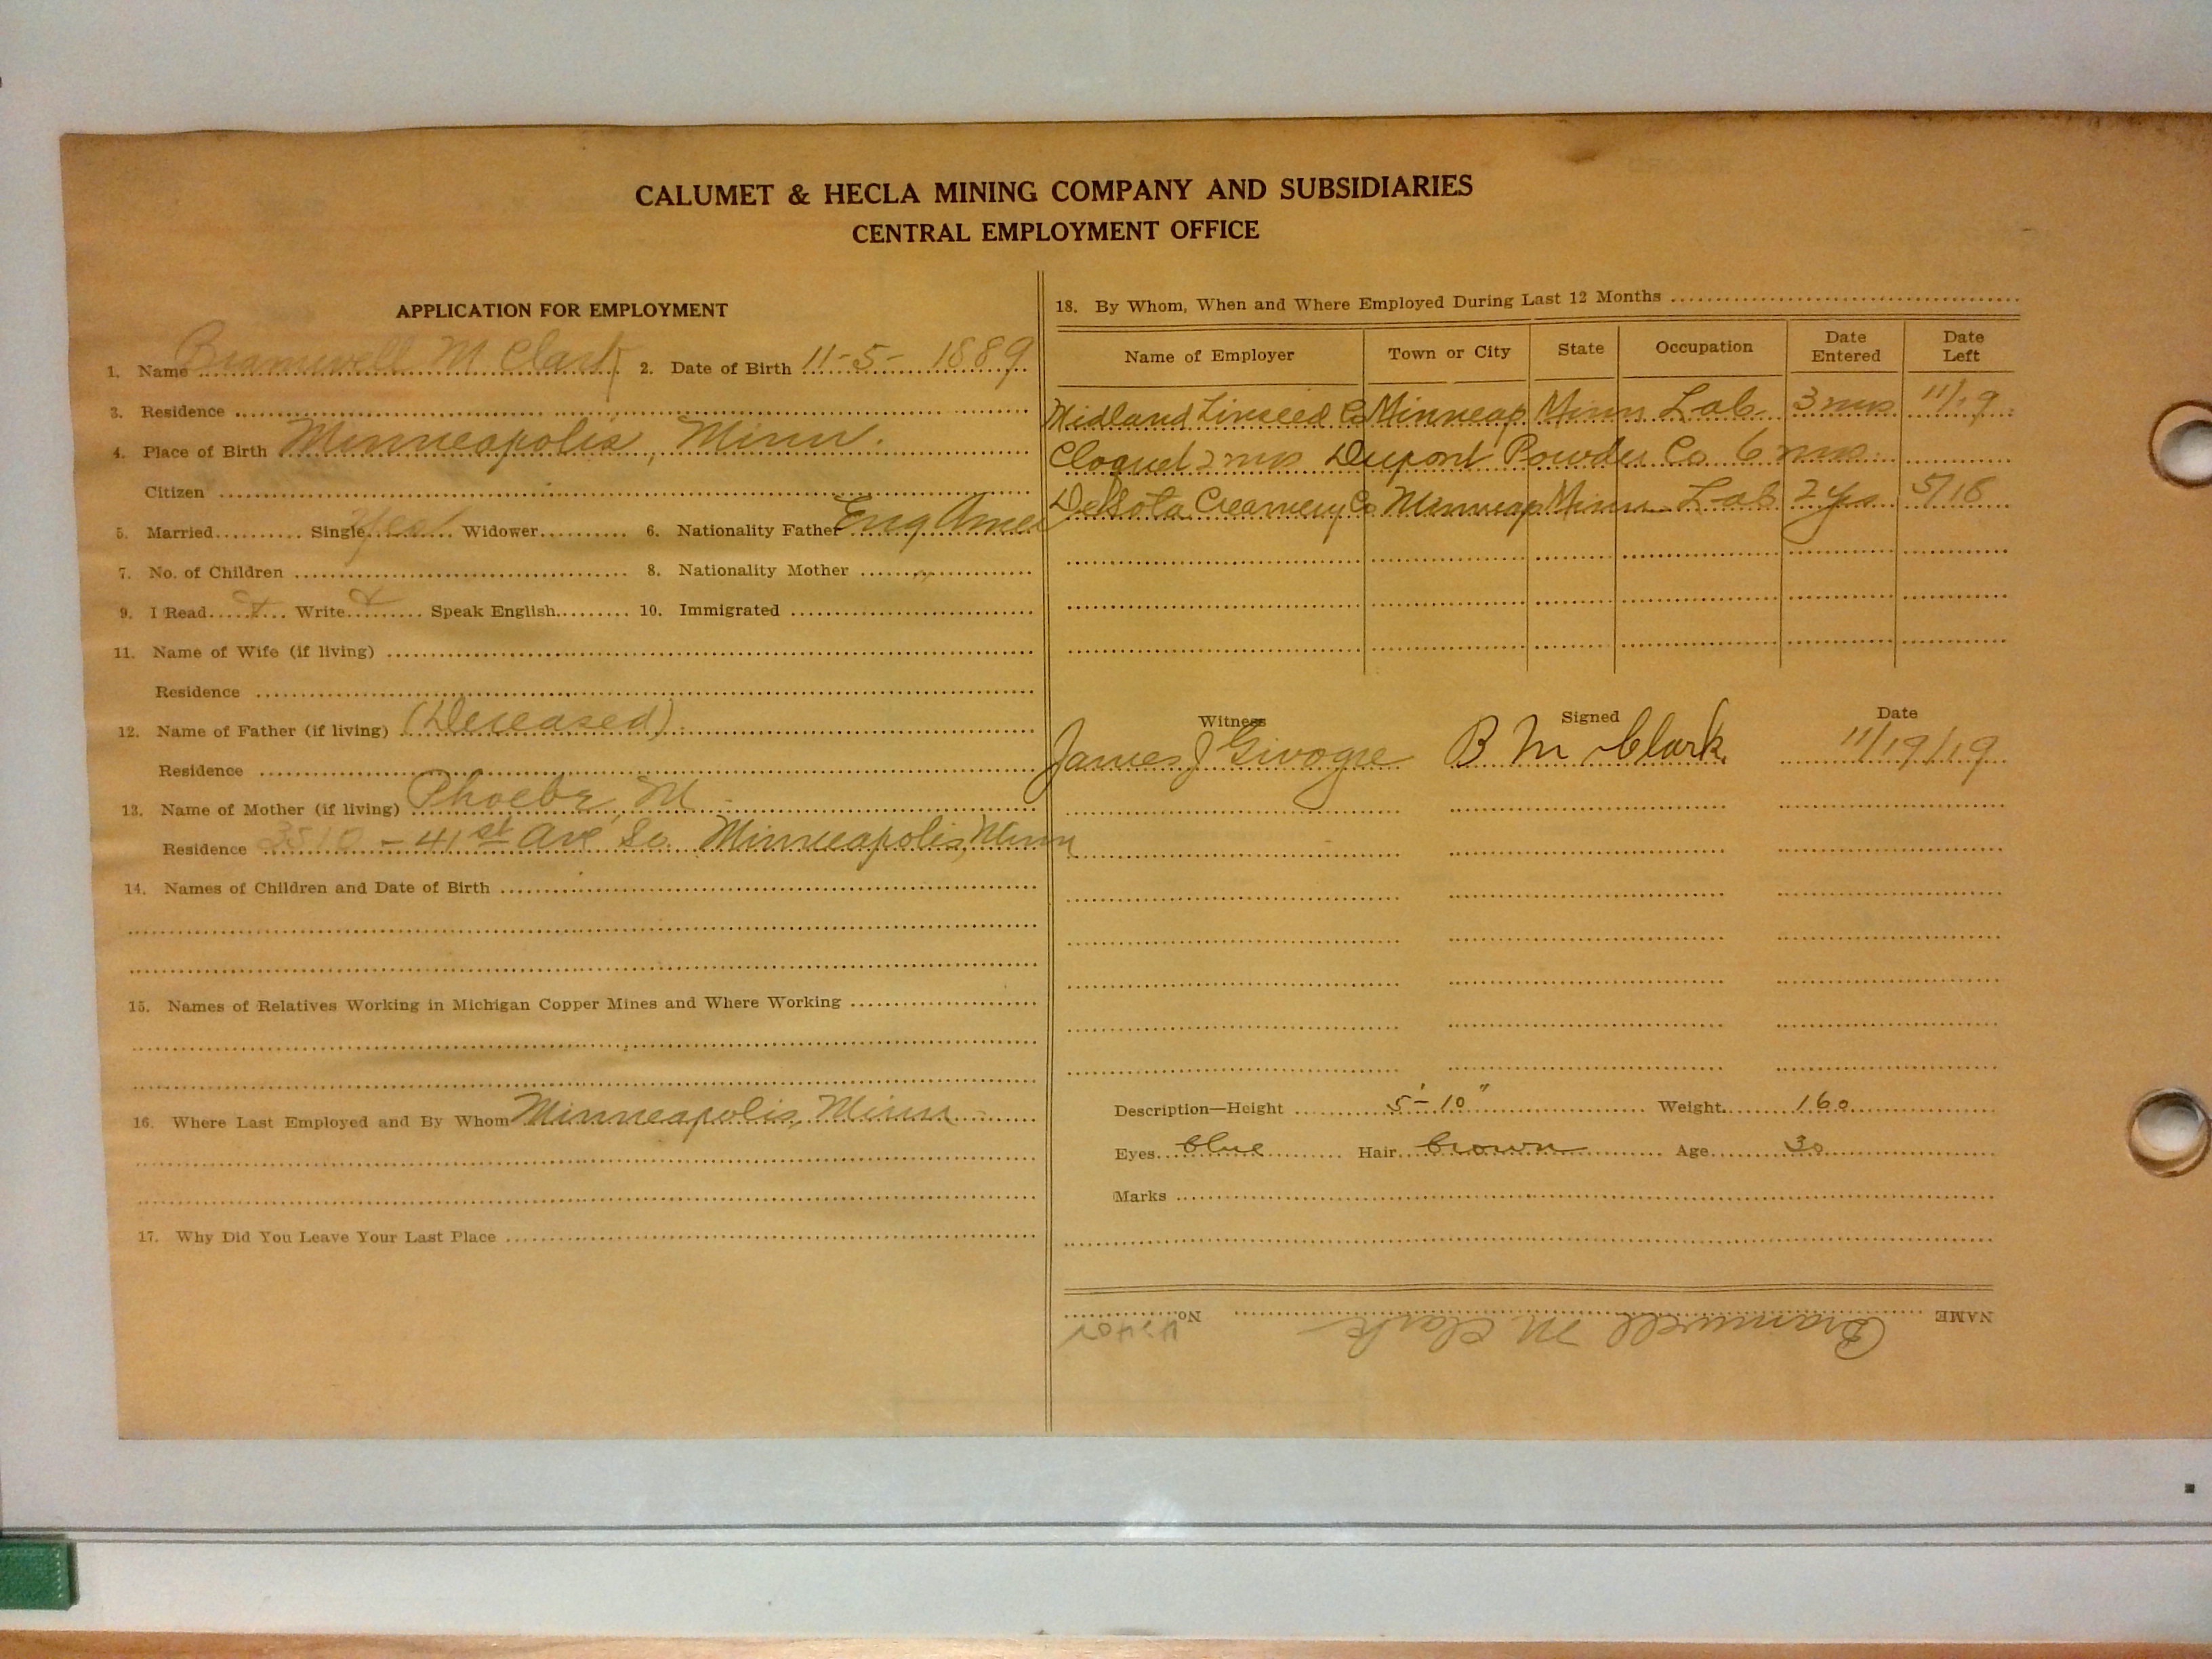 CALUMET & HECLA MINING COMPANY AND SUBSIDIARIES
CENTRAL EMPLOYMENT OFFICE
APPLICATION FOR EMPLOYMENT
1. Name Bramwell M Clark 2. Date of Birth 11-5-1889
3. Residence
4. Place of Birth Minneapolis, Minn.
Citizen
5. Married Single yes Widower 6. Nationality Father Eng Amer
7. No. of Children 8. Nationality Mother
9. I Read x Write x Speak English 10. Immigrated
11. Name of Wife (if living)
Residence
12. Name of Father (if living) (Deceased)
Residence
13. Name of Mother (if living) Phoebe M
Residence 3510 - 41st Ave So. Minneapolis, Minn
14. Names of Children and Date of Birth
15. Names of Relatives Working in Michigan Copper Mines and Where Working
16. Where Last Employed and By Whom Minneapolis, Minn
17. Why Did You Leave Your Last Place
18. By Whom, When and Where Employed During Last 12 Months
Name of Employer Town or City State Occupation Date Entered Date Left
Midland Linseed Co Minneap Minn Lab 3 mos 11/19
Cloquet 2 mos Dupont Powder Co 6 mos
DeSota Creamery Co Minneap Minn Lab 2 yrs 5/18
Witness Signed Date
James J B M Clark 11/19/19
Description—Height 5'-10" Weight 160
Eyes blue Hair brown Age 30
Marks
NAME Bramwell M Clark No.